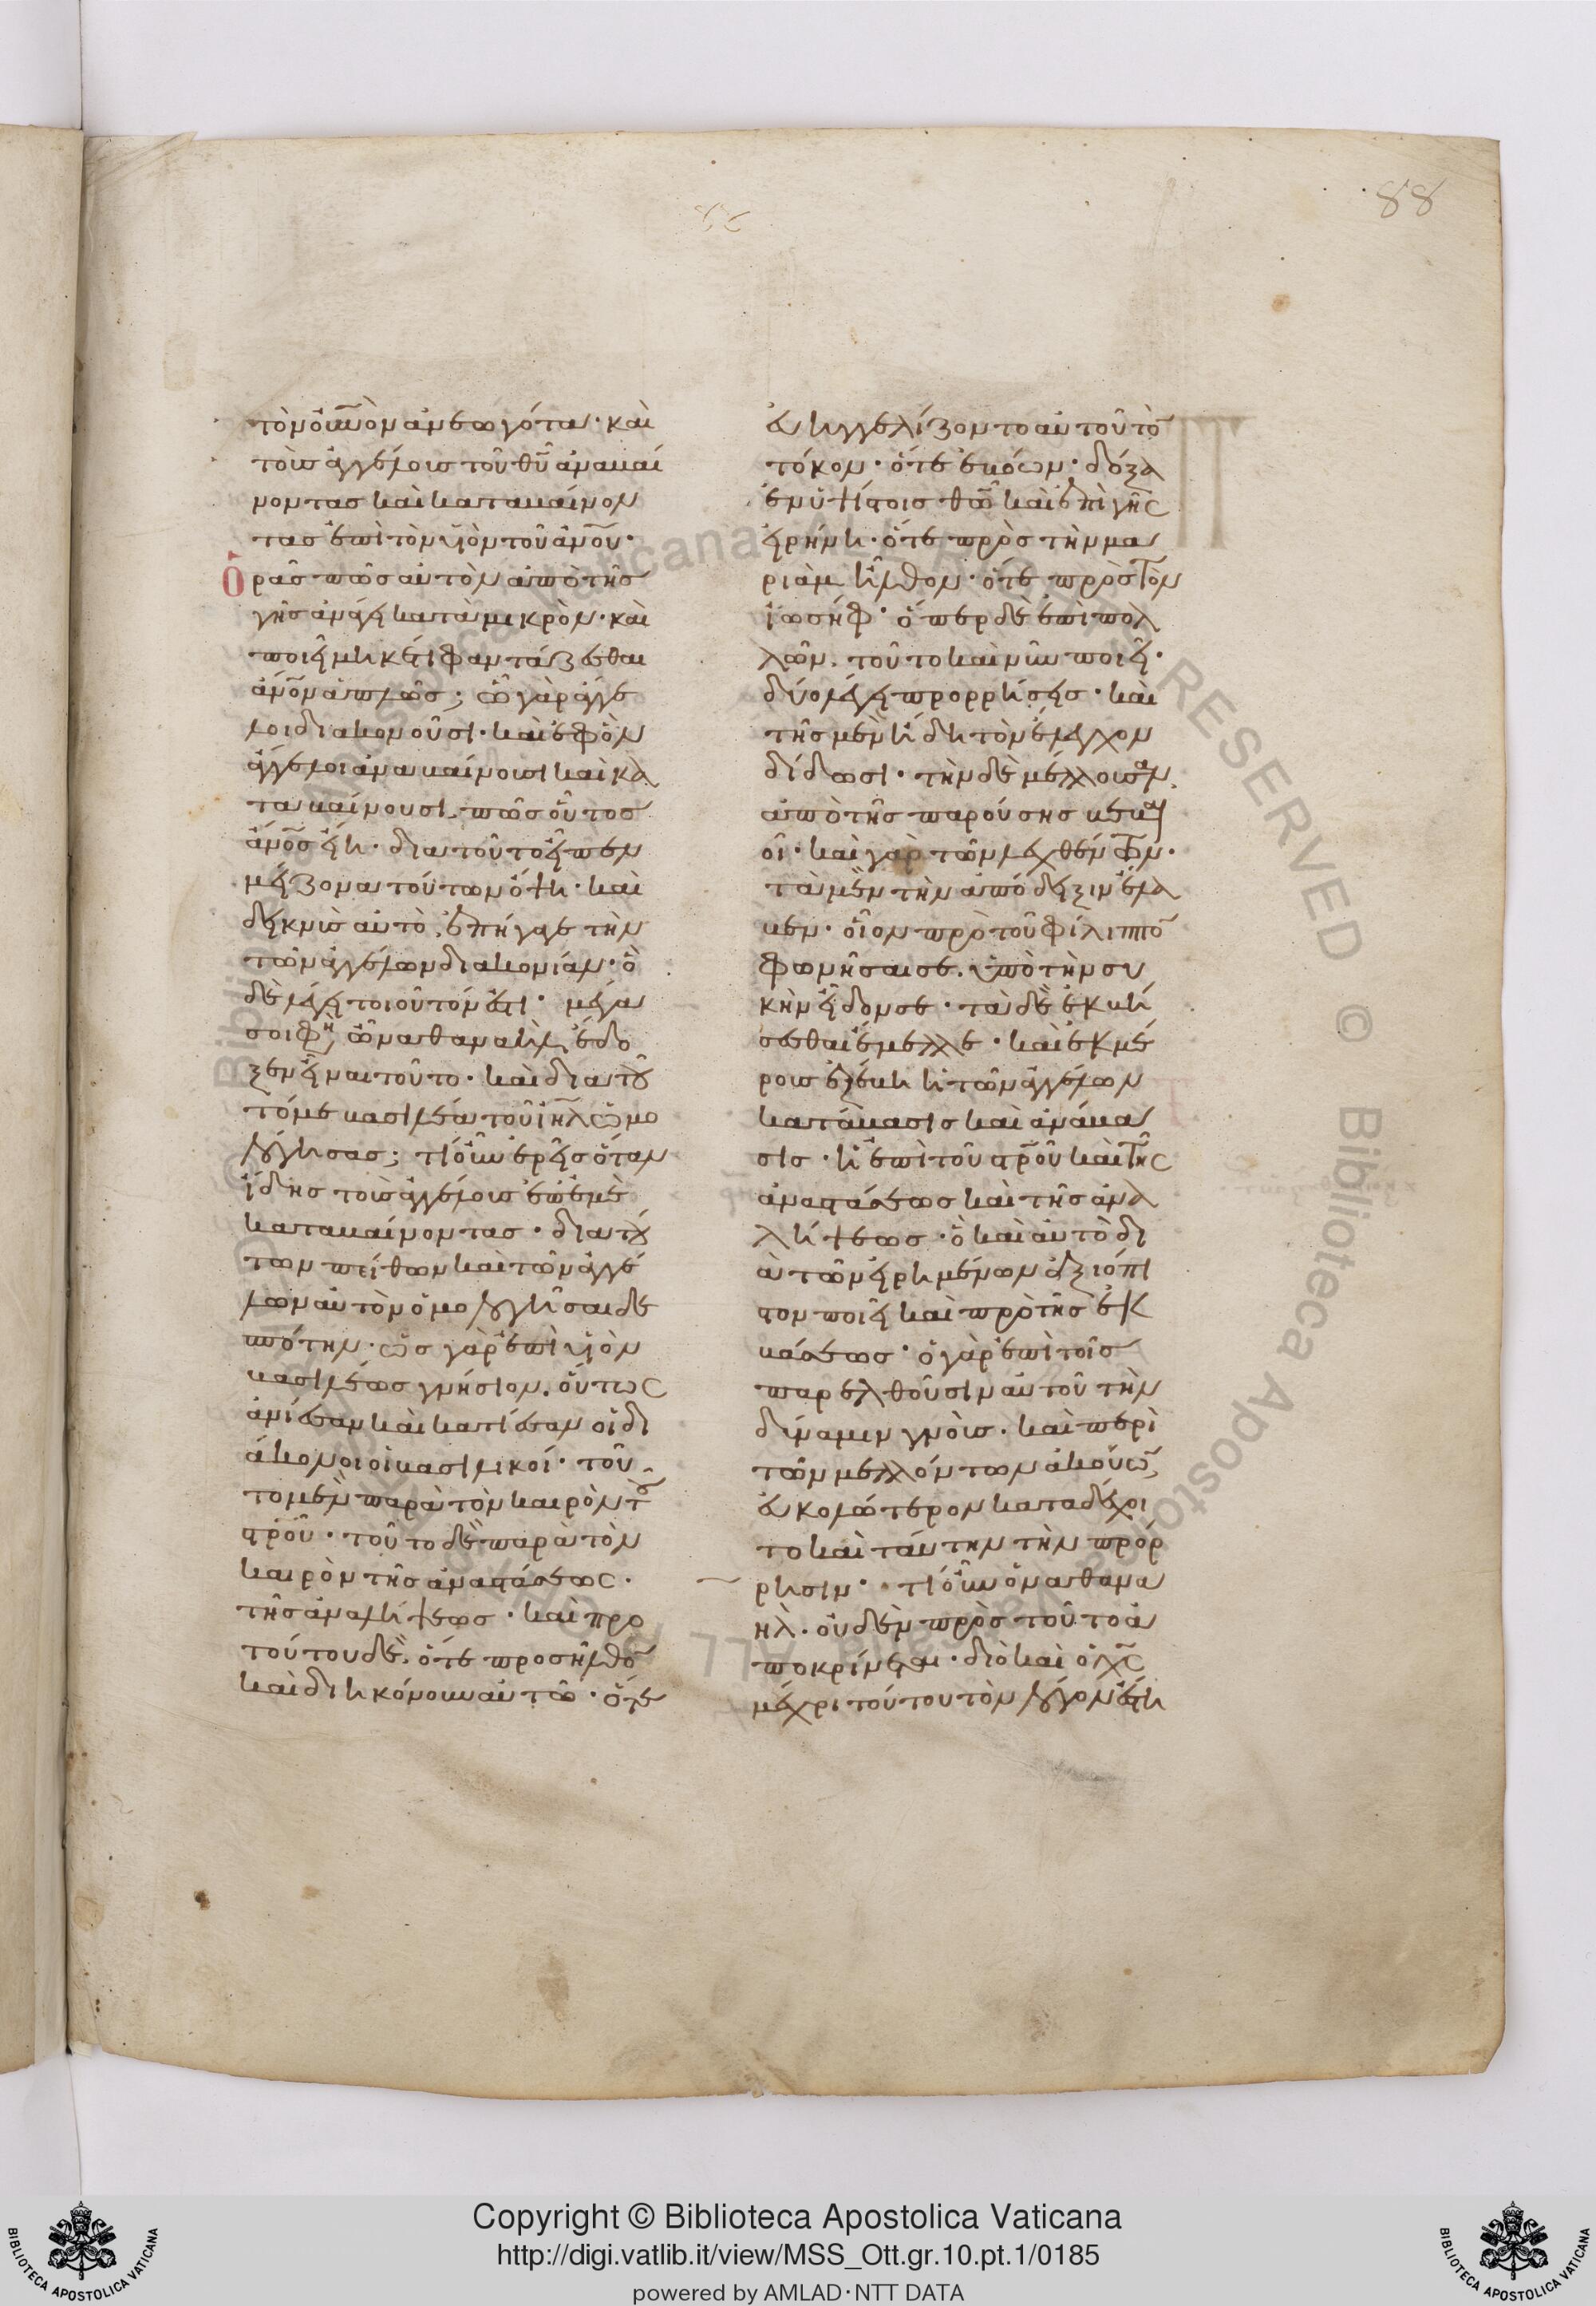 88
τὸν οὐνὸν ἀνεωγότα· καὶ
τοὺς ἀγγέλους τοῦ θῦ ἀναβαί
νοντας καὶ καταβαίνον
τας ἐπὶ τὸν υἱὸν τοῦ ἀνου·
Ὁρᾶς πῶς αὐτὸν ἀπὸ τῆς
γῆς ἀνάγει κατὰ μικρὸν· καὶ
ποιεῖ μηκέτι φαντάζεσθαι
ἄνον ἁπλῶς; ᾧ γὰρ ἄγγε
λοι διακονοῦσι· καὶ ἐφ' ὃν
ἄγγελοι ἀναβαίνουσι καὶ κα
ταβαίνουσι, πῶς οὗτος
ἄνος εἴη· διὰ τοῦτο εἶπεν
μείζονα τούτων ὄψη· καὶ
δεικνὺς αὐτὸ, ἐπήγαγε τὴν
τῶν ἀγγέλων διακονίαν· ὃ
δὲ λέγει τοιοῦτόν ἐστι· μέγα
σοι φη, ὦ ναθαναὴλ, ἔδο
ξεν εἶναι τοῦτο· καὶ διὰ τοῦ
τό με βασιλέα τοῦ ἰηλ ὡμο
λόγησας; τί οὖν ἐρεῖς ὅταν
ἴδης τοὺς ἀγγέλους ἐπ' ἐμὲ
καταβαίνοντας· διὰ τού
των πείθων καὶ τῶν ἀγγέ
λων αὐτὸν ὁμολογῆσαι δε
σπότην· ὡς γὰρ ἐπὶ υἱὸν
βασιλέως γνήσιον, οὕτως
ἀνίεσαν καὶ κατίεσαν οἱ δι
άκονοι οἱ βασιλικοί· τοῦ
το μὲν παρὰ τὸν καιρὸν τοῦ
στροῦ· τοῦτο δὲ παρὰ τὸν
καιρὸν τῆς ἀναστάσεως·
τῆς ἀναλήψεως· καὶ προ
τούτου δὲ, ὅτε προσῆλθον
καὶ διηκόνουν αὐτῶ· ὅτε
εὐηγγελίζοντο αὐτοῦ τὸν
τόκον· ὅτε ἐβόων· δόξα
ἐν ὑψίστοις θῶ καὶ ἐπὶ γῆς
εἰρήνη· ὅτε πρὸς τὴν μα
ριὰμ ἦλθον· ὅτε πρὸς τὸν
ἰωσήφ· ὅπερ δὲ ἐπὶ πολ
λῶν, τοῦτο καὶ νῦν ποιεῖ·
δύο λέγει προρρήσεις· καὶ
τῆς μὲν ἤδη τὸν ἔλεγχον
δίδωσι· τὴν δὲ μέλλουσαν,
ἀπὸ τῆς παρούσης βεβαι
οῖ· καὶ γὰρ τῶν λεχθέντων·
τὰ μὲν τὴν ἀπόδειξιν ἔλα
βεν· οἷον πρὸ τοῦ φίλιππον
φωνῆσαί σε, ὑπὸ τὴν συ
κὴν εἶδόν σε· τὰ δὲ ἐκβή
σεσθαι ἔμελλε· καὶ ἐκ μέ
ρους ἐξέβη ἡ τῶν ἀγγέλων
κατάβασις καὶ ἀνάβα
σις· ἡ ἐπὶ τοῦ στροῦ καὶ τῆς
ἀναστάσεως καὶ τῆς ἀνα
λήψεως· ὃ καὶ αὐτὸ δι
ὰ τῶν εἰρημένων ἀξιόπι
στον ποιεῖ καὶ πρὸ τῆς ἐκ
βάσεως· ὁ γὰρ ἐπὶ τοῖς
παρελθοῦσιν αὐτοῦ τὴν
δύναμιν γνοὺς, καὶ περὶ
τῶν μελλόντων ἀκούων,
εὐκολώτερον καταδέχοι
το καὶ ταύτην τὴν πρόρ
ρησιν· τί οὖν ὁ ναθανα
ηλ· οὐδὲν πρὸς τοῦτο ἀ
ποκρίνεται· διὸ καὶ ὁ χς
μέχρι τούτου τὸν λόγον ἔστη
Copyright © Biblioteca Apostolica Vaticana
http://digi.vatlib.it/view/MSS_Ott.gr.10.pt.1/0185
powered by AMLAD·NTT DATA
BIBLIOTECA APOSTOLICA VATICANA
BIBLIOTECA APOSTOLICA VATICANA